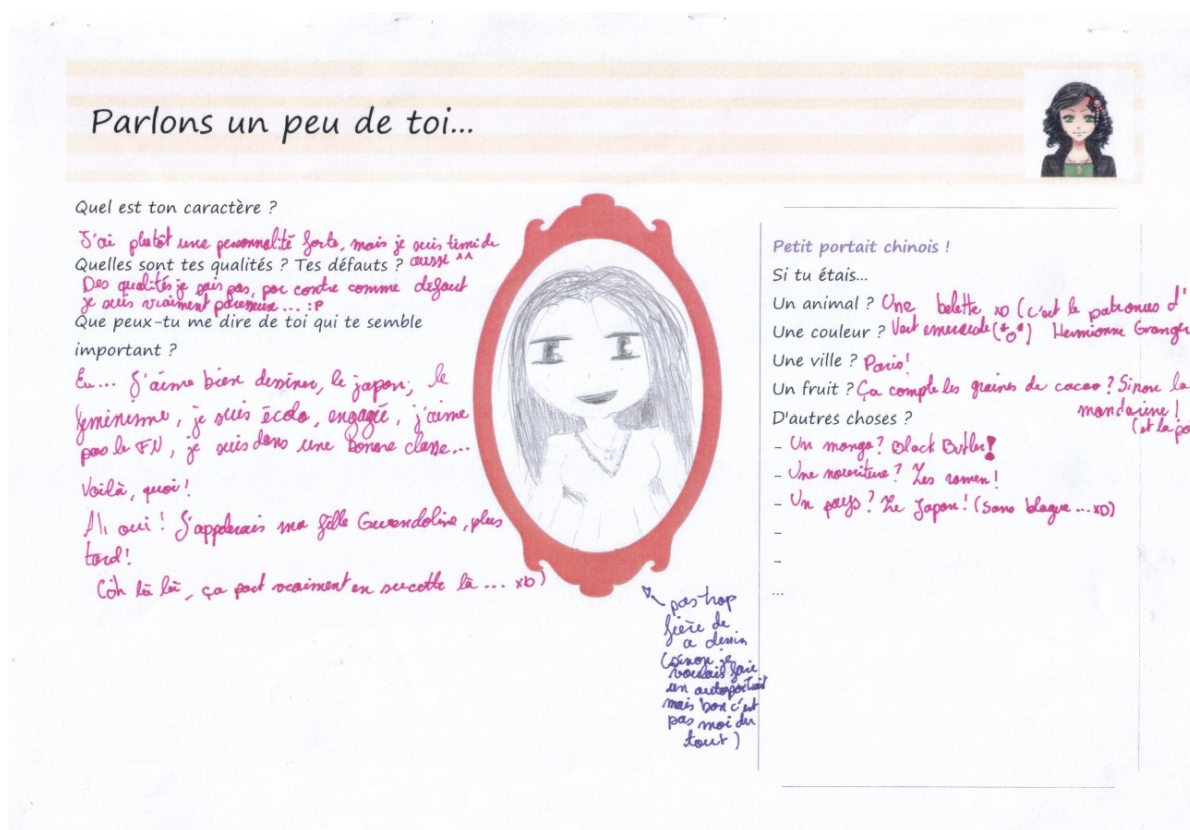 Parlons un peu de toi...
Quel est ton caractère ?
J'ai plutôt une personnalité forte, mais je suis timide
aussi ^^
Quelles sont tes qualités ? Tes défauts ?
Des qualités je sais pas, par contre comme défaut
je suis vraiment paresseuse... :P
Que peux-tu me dire de toi qui te semble
important ?
Eu... J'aime bien dessiner, le japon, le
féminisme, je suis écolo, engagée, j'aime
pas le FN, je suis dans une bonne classe...
Voilà, quoi !
Ah oui ! J'appelerais ma fille Gwendoline, plus
tard !
(Oh là là, ça part vraiment en sucette là ... xD)
pas trop
fière de
a dessin
(sinon je
voulais faire
un autoportrait
mais bon c'est
pas moi du
tout)
Petit portait chinois !
Si tu étais...
Un animal ? Une belette xD (c'est le patronus d'
Hermionne Grang
Une couleur ? Vert emeraude (*o*)
Une ville ? Paris !
Un fruit ? Ça compte les graines de cacao ? Sinon la
mandarine !
(et la po
D'autres choses ?
- Un manga ? Black Butler !
- Une nourriture ? Les ramen !
- Un pays ? Le Japon ! (Sans blague ... xD)
-
-
...